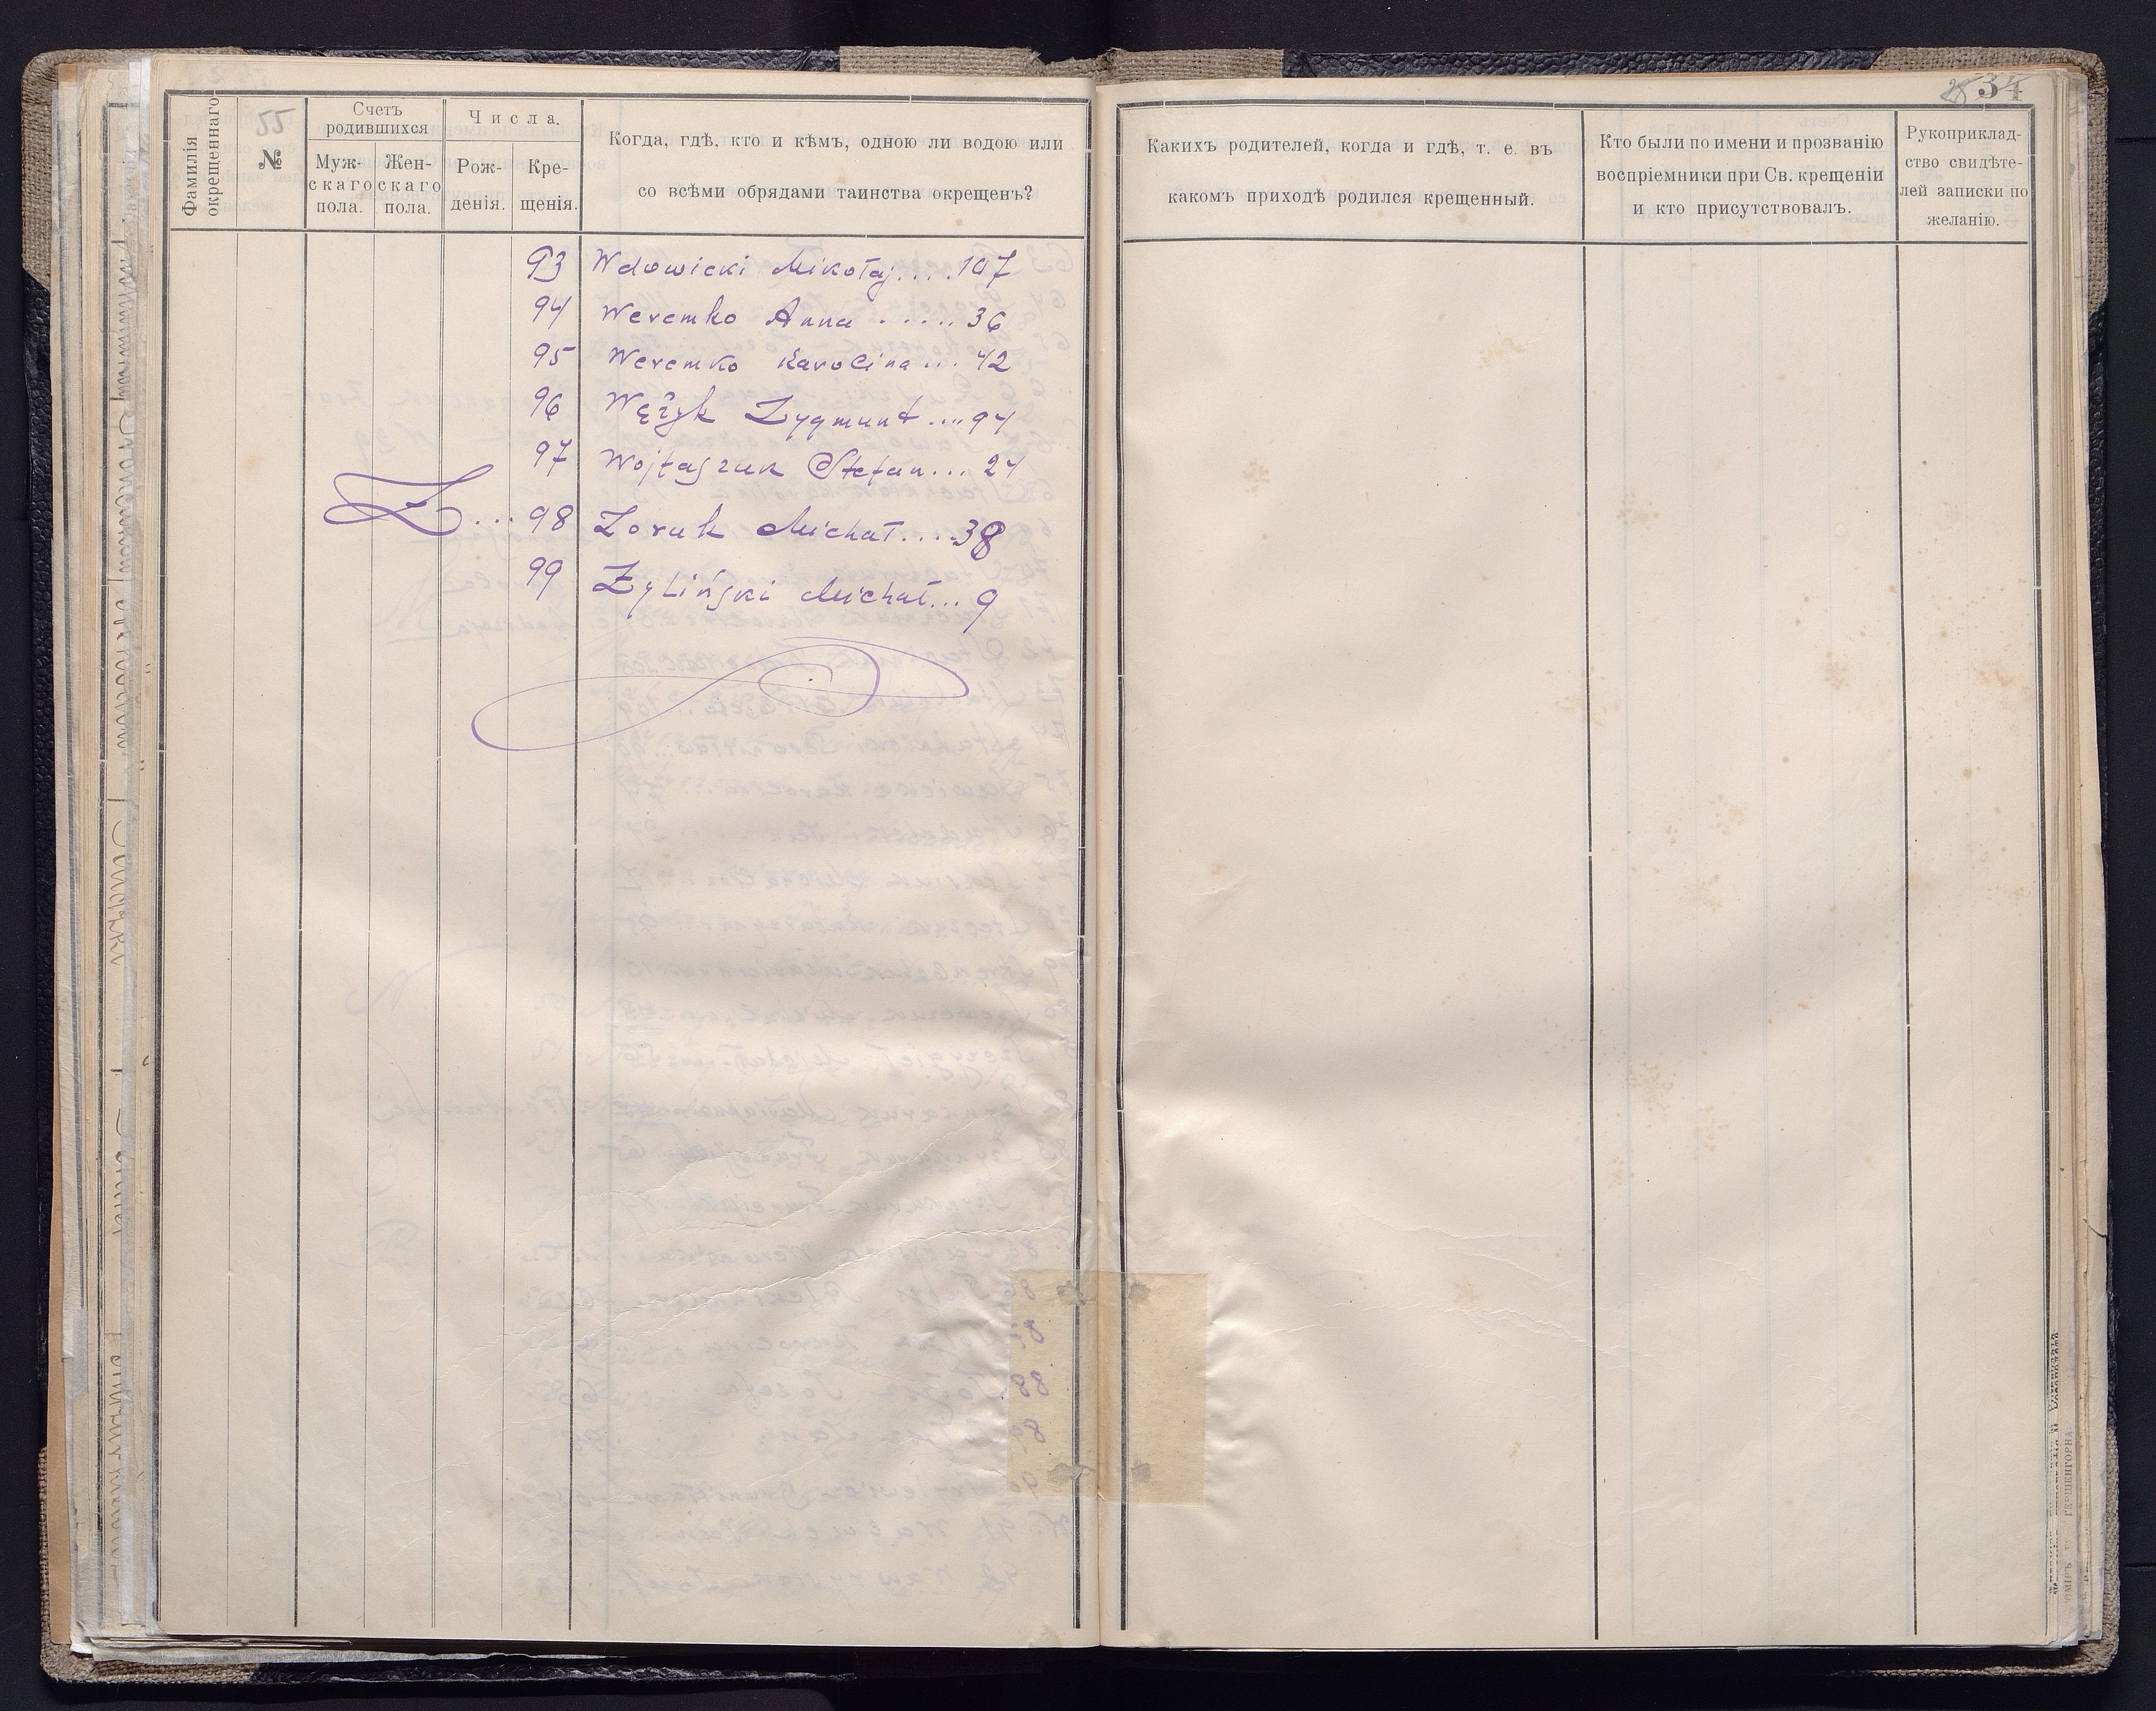 Фамилія окрещеннаго
55
№
Счетъ родившихся
Муж-
скаго
пола.
Жен-
скаго
пола.
Числа.
Рож-
денія.
Кре-
щенія.
Когда, гдѣ, кто и кѣмъ, одною ли водою или
со всѣми обрядами таинства окрещенъ?
93 Wdowicki Mikołaj....107
94 Weremko Anna ..... 36
95 Weremko Karolina... 42
96 Wężyk Zygmunt....94
97 Wojtaszuk Stefan... 24
Z... 98 Zoruk Michał....38
99 Żyliński Michał... 9
34
Какихъ родителей, когда и гдѣ, т. е. въ
какомъ приходѣ родился крещенный.
Кто были по имени и прозванію
воспріемники при Св. крещеніи
и кто присутствовалъ.
Рукоприклад-
ство свидѣте-
лей записки по
желанію.